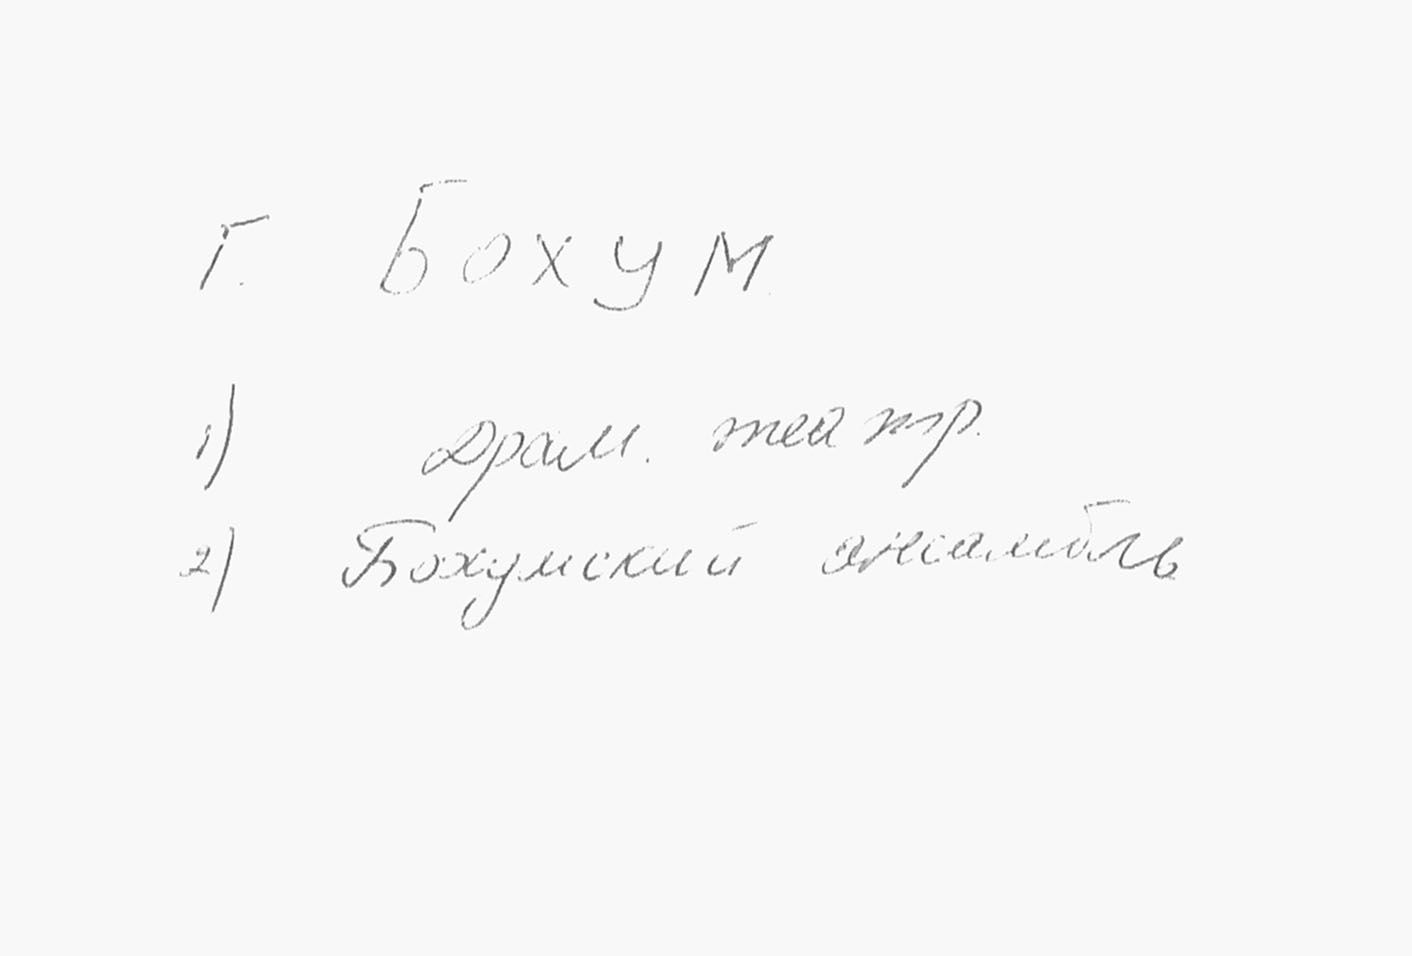 г. Бохум
1) драм. театр.
2) Бохумский ансамбль